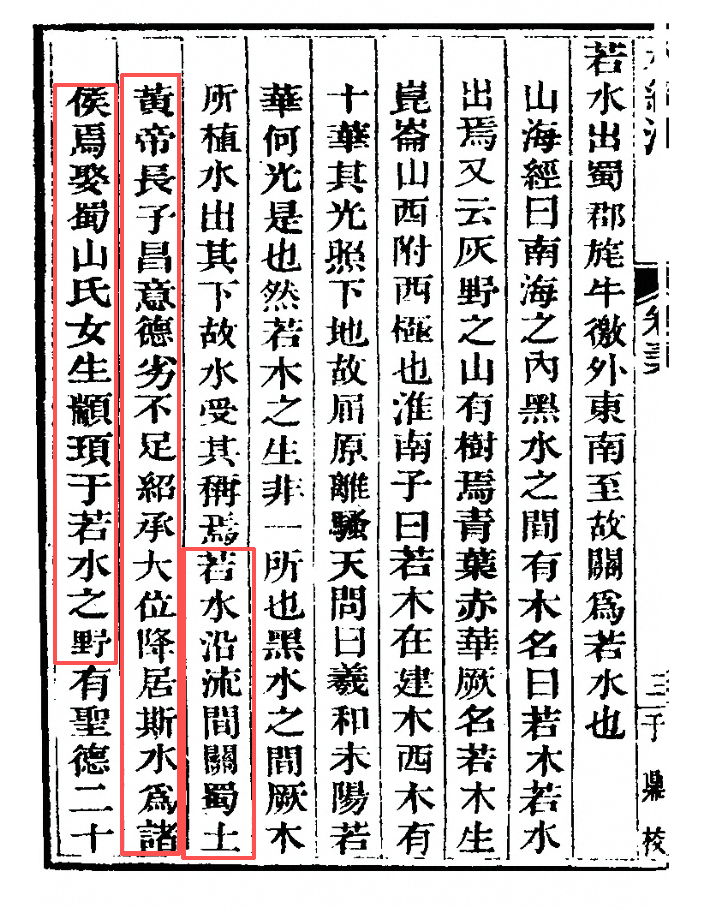 水經注
三
若水出蜀郡旄牛徼外東南至故關爲若水也
山海經曰南海之內黑水之間有木名曰若木若水
出焉又云灰野之山有樹焉青葉赤華厥名若木生
崑崙山西附西極也淮南子曰若木在建木西木有
十華其光照下地故屈原離騷天問曰羲和未陽若
華何光是也然若木之生非一所也黑水之間厥木
所植水出其下故水受其稱焉若水沿流間關蜀土
黃帝長子昌意德劣不足紹承大位降居斯水爲諸
侯焉娶蜀山氏女生顓頊于若水之野有聖德二十